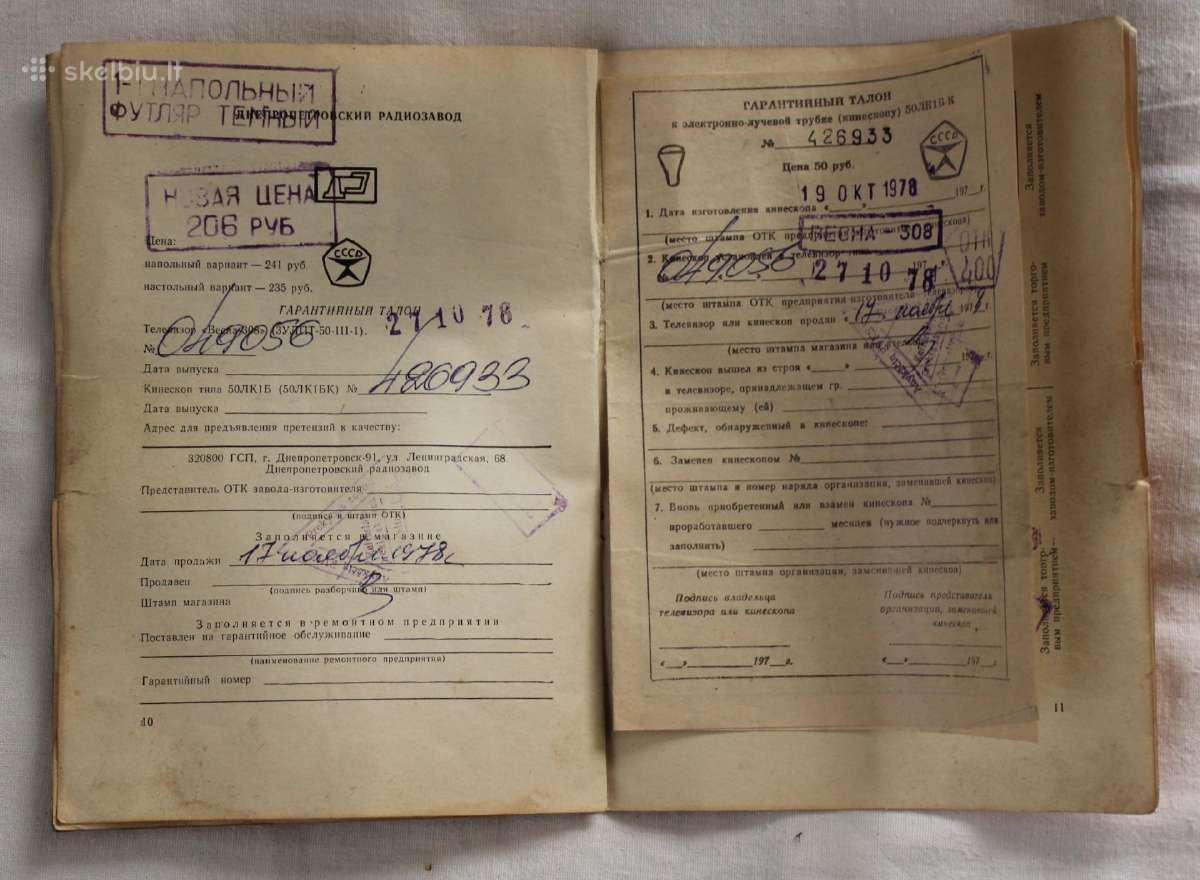 skelbiu.lt
НАПОЛЬНЫЙ
ФУТЛЯР ТЕМНЫЙ
ДНЕПРОПЕТРОВСКИЙ РАДИОЗАВОД
НОВАЯ ЦЕНА
206 РУБ
Цена:
напольный вариант — 241 руб
настольный вариант — 235 руб.
СССР
ГАРАНТИЙНЫЙ ТАЛОН
27 10 78
Телевизор «Весна-308» (ЗУЛПТ-50-III-1).
№ 049056
Дата выпуска
Кинескоп типа 50ЛК1Б (50ЛК1БК) № 426933
Дата выпуска
Адрес для предъявления претензий к качеству:
320800 ГСП, г. Днепропетровск-91, ул Ленинградская, 68
Днепропетровский радиозавод
Представитель ОТК завода-изготовителя
(подпись и штамп ОТК)
Заполняется в магазине
Дата продажи 17 ноября 1978г.
Продавец
(подпись разборчиво или штамп)
Штамп магазина
Заполняется в ремонтном предприятии
Поставлен на гарантийное обслуживание
(наименование ремонтного предприятия)
Гарантийный номер
10
ГАРАНТИЙНЫЙ ТАЛОН
к электронно-лучевой трубке (кинескопу) 50ЛК1Б-К
№ 426933
СССР
Цена 50 руб.
19 ОКТ 1978
1. Дата изготовления кинескопа «___» 197__г.
(место штампа ОТК предприятия изготовителя кинескопа)
ВЕСНА 308
2. Кинескоп установлен в телевизор 197 г.
№ 049056
27 10 78
ОТК
400
(место штампа ОТК предприятия-изготовителя телевизора)
3. Телевизор или кинескоп продан «17 ноября
(место штампа магазина или ателье)
4. Кинескоп вышел из строя «___» 197__г.
в телевизоре, принадлежащем гр.
проживающему (ей)
5. Дефект, обнаруженный в кинескопе:
6. Заменен кинескопом №
(место штампа и номер наряда организации, заменившей кинескоп)
7. Вновь приобретенный или взамен кинескоп №
проработавшего месяцев (нужное подчеркнуть или
заполнить)
(место штампа организации, заменившей кинескоп)
Подпись владельца
телевизора или кинескопа
Подпись представителя
организации, заменившей
кинескоп
«__»______197__г.
«__»______197__г.
Заполняется
заводом-изготовителем
Заполняется торго-
вым предприятием
Заполняется
заводом-изготовителем
Заполняется торго-
вым предприятием
11